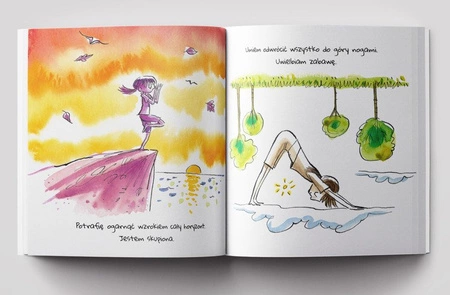 Potrafię ogarnąć wzrokiem cały horyzont.
Jestem skupiona
Umiem odwrócić wszystko do góry nogami.
Uwielbiam zabawę.